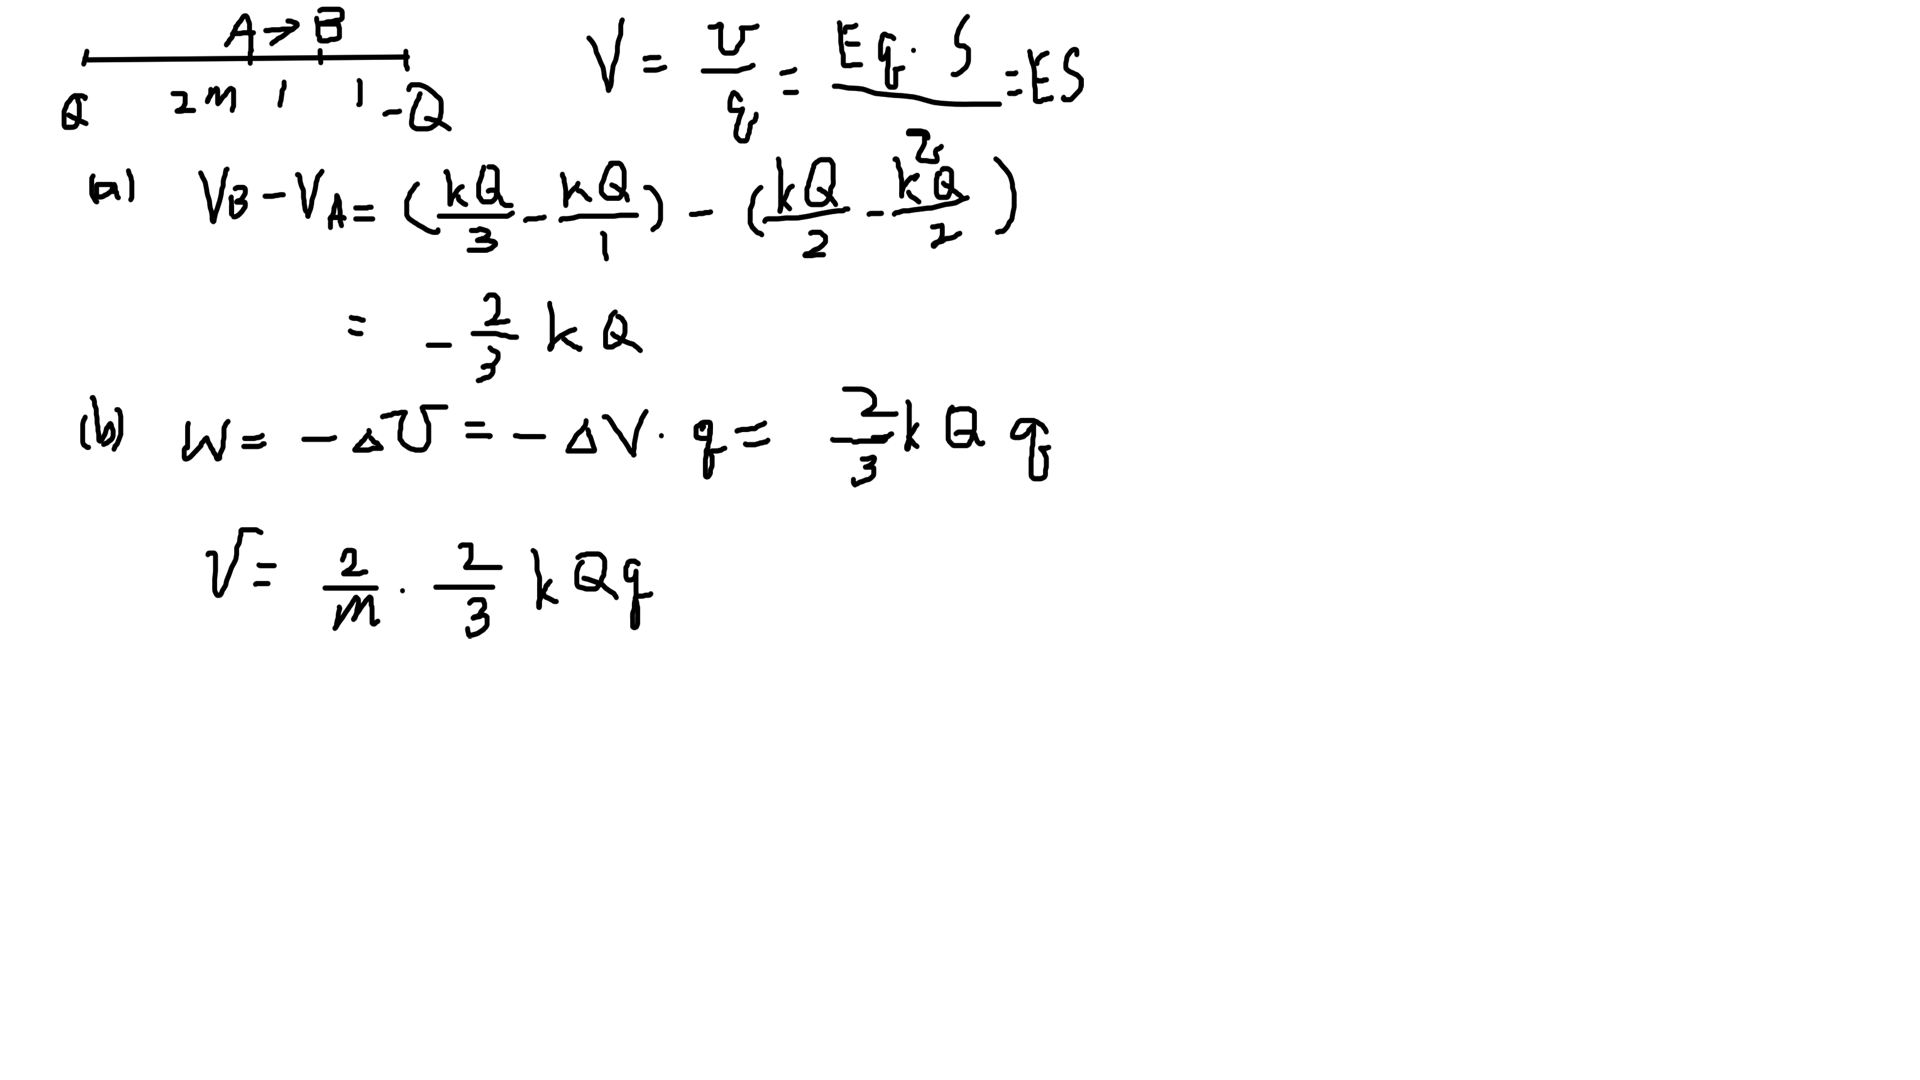 A → B
Q 2m 1 1 -Q
V = U/q = Eq·S/q = ES
(a) V_B - V_A = (kQ/3 - kQ/1) - (kQ/2 - kQ/2)
= -2/3 kQ
(b) W = -ΔU = -ΔV·q = 2/3 kQq
V = 2/m · 2/3 kQq